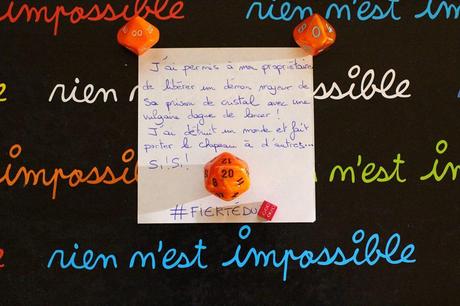 impossible rien n'est im
rien n'est impossible
J'ai permis à ma propriétaire
de libérer un démon majeur de
sa prison de cristal avec une
vulgaire dague de lancer !
J'ai détruit un monde et fait
porter le chapeau à d'autres...
Si ! Si !
impossible rien n'est
12
20
8
#FIERTÉDU
rien n'est impossible